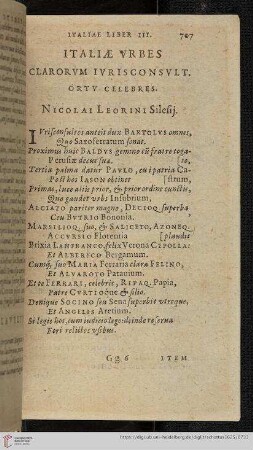 ITALIAE LIBER III. 707
ITALIÆ VRBES
CLARORVM IVRISCONSVLT.
ORTV CELEBRES.
NICOLAI LEORINI Silesij.
IVrisconsultos anteit dux BARTOLVS omnes,
Quo Saxoferratum sonat.
Proximus huic BALDVS gemino cū fratre toga-
Perusiæ decus sua. [to,
Tertia palma datur PAVLO, cui patria Ca-
Post hos IASON obtinet [strum.
Primas, luce alijs prior, & prior ordine cunctis,
Quo gaudet vrbs Insubrium,
ALCIATO pariter magno, DECIOQ, superba
Ceu BVTRIO Bononia.
MARSILIOQ, suo, & SALICETO, AZONEQ.
ACCVRSIO Florentia [plaudit
Brixia LANFRANCO, felix Verona CEPOLLA:
Et ALBERICO Bergamum.
Cumq, suo MARIA Ferraria clara FELINO,
Et ALVAROTO Patauium.
Et te FERRARI, celebris, RIPAQ, Papia,
Patre CVRTIOQVE & filio.
Denique SOCINO seu Sena superbit vtroque,
Et ANGELIS Aretium.
Si legis hos, cum iudicio lege: deinde reserua
Fori relictos vsibus.
Gg 6 ITEM